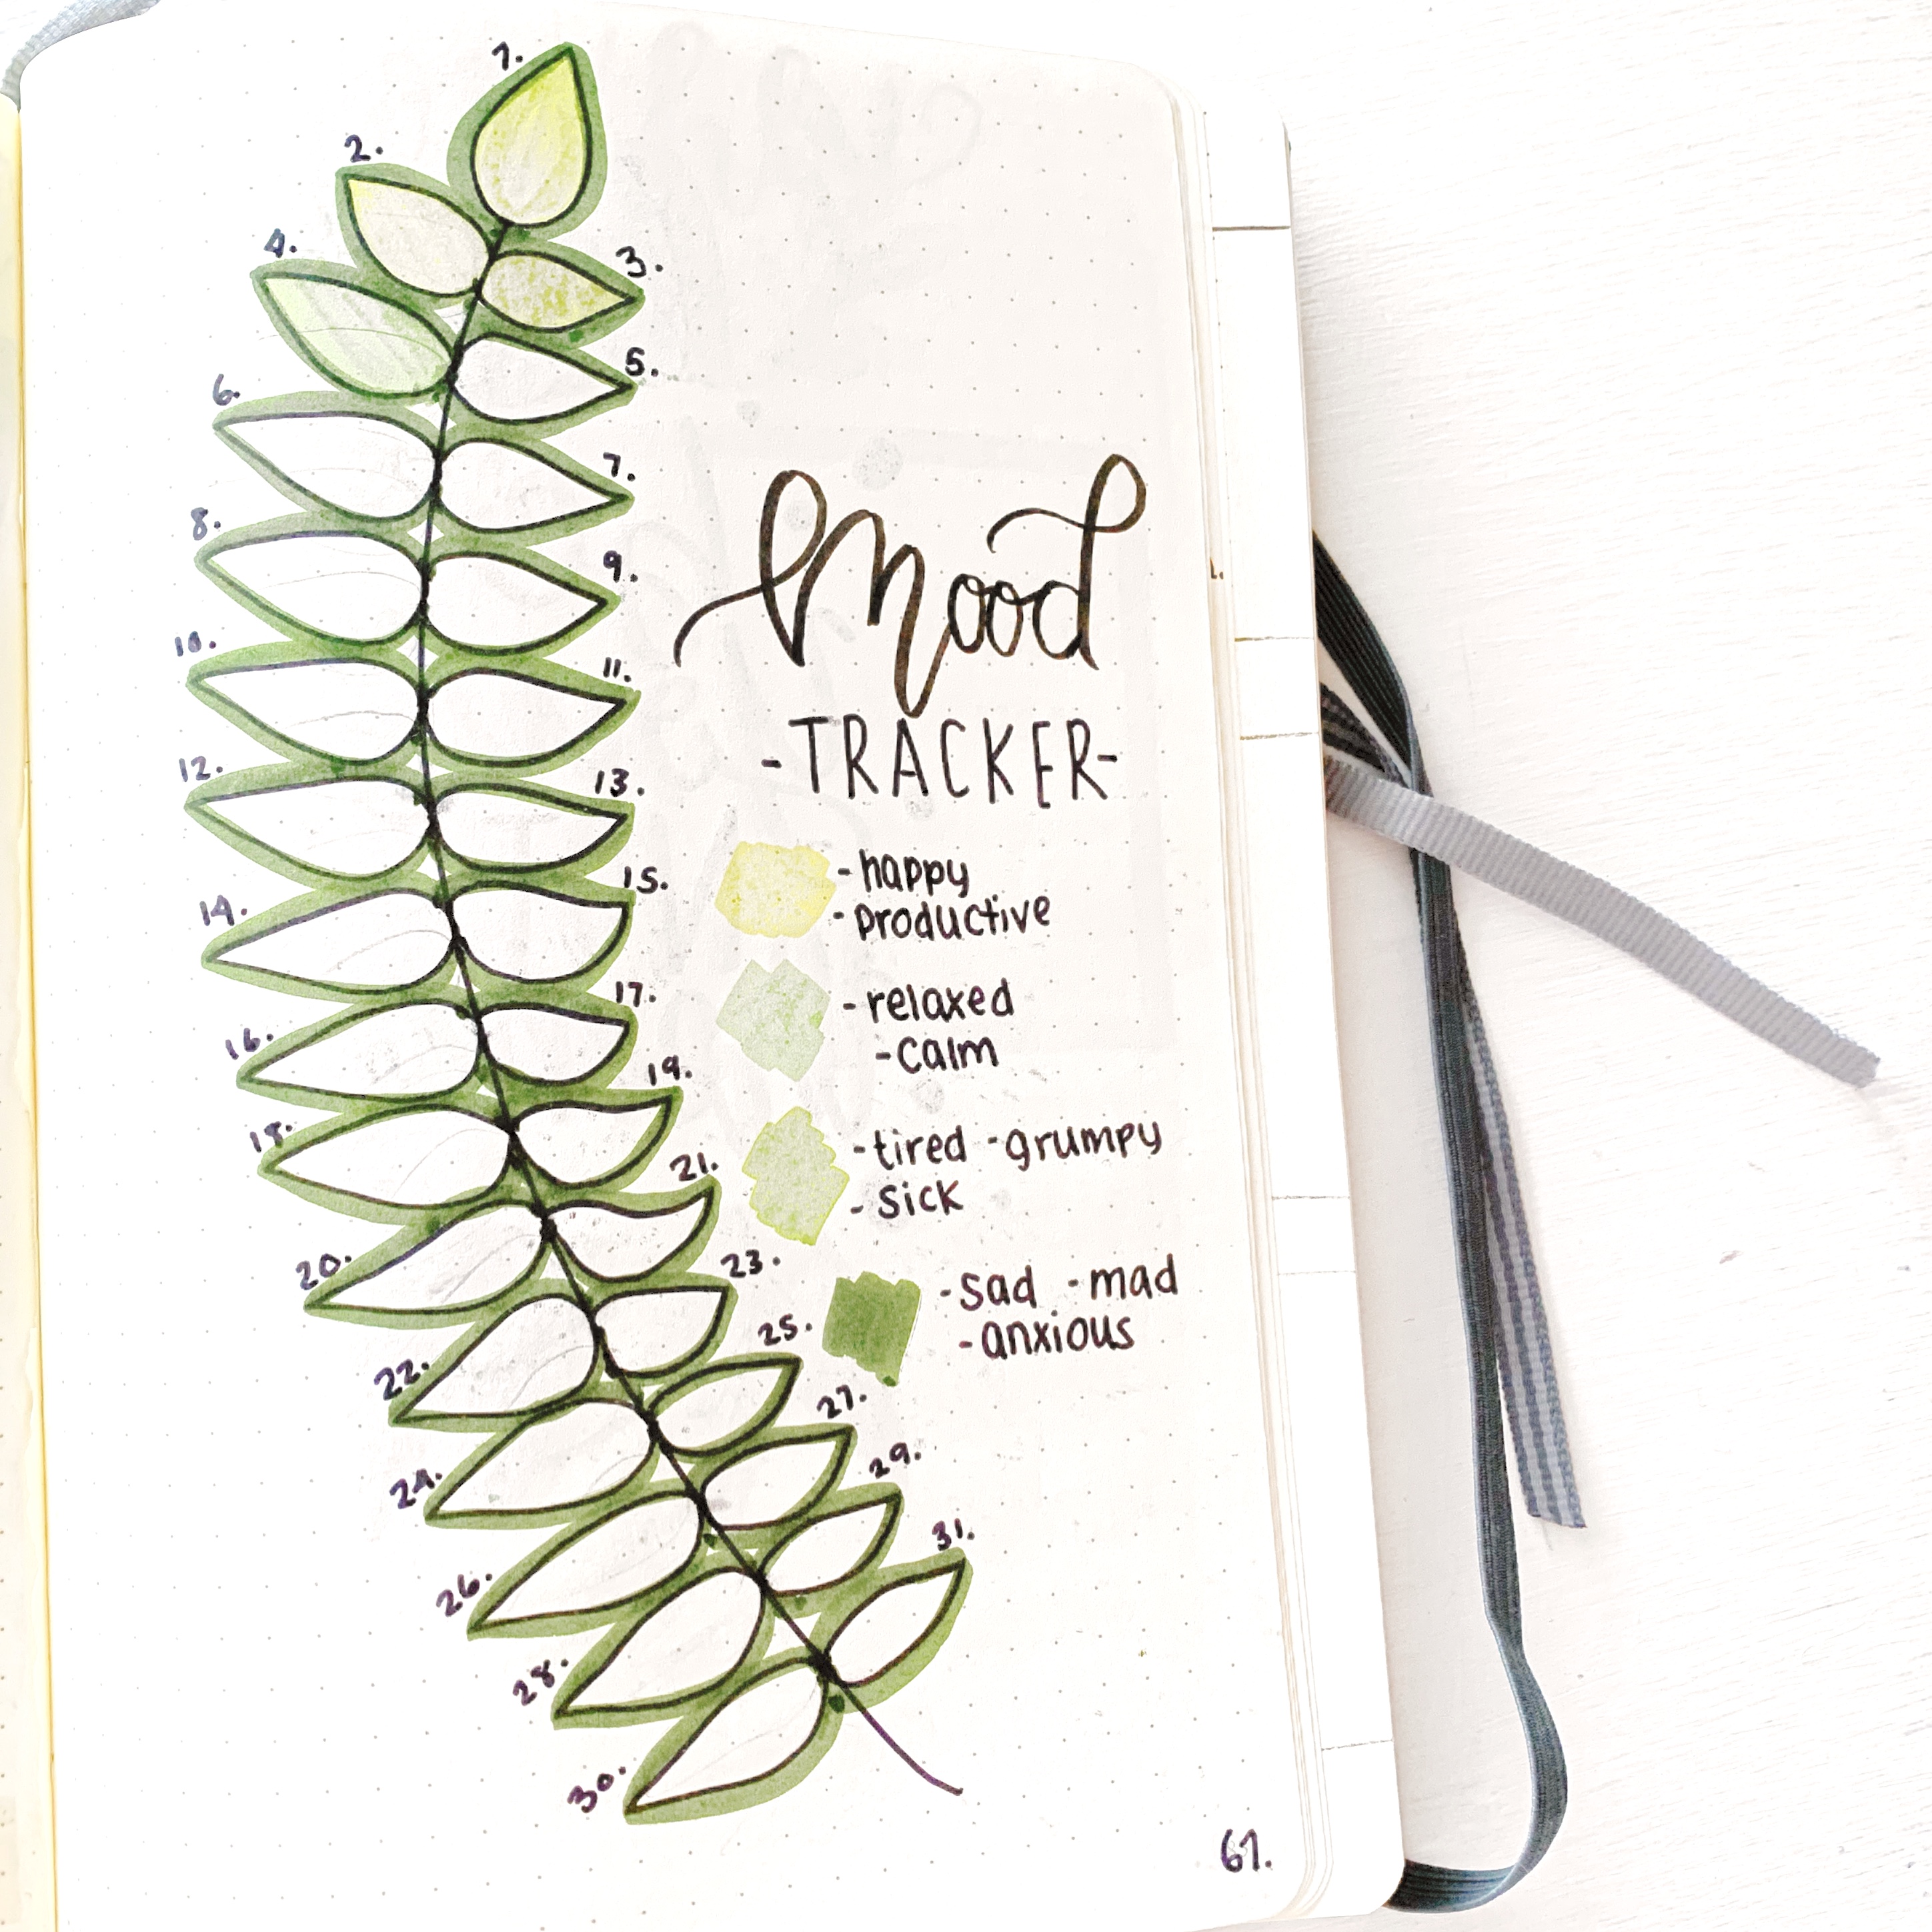 1.
2.
3.
4.
5.
6.
7.
8.
9.
10.
11.
12.
13.
14.
15.
16.
17.
18.
19.
20.
21.
22.
23.
24.
25.
26.
27.
28.
29.
30.
31.
Mood
-TRACKER-
-happy
-productive
-relaxed
-calm
-tired -grumpy
-sick
-sad -mad
-anxious
61.